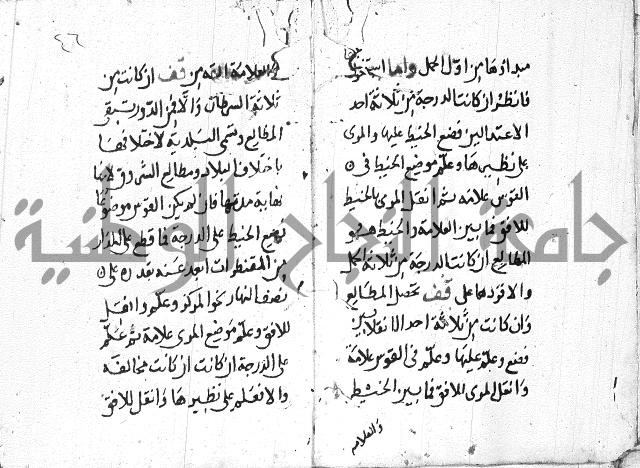 مبداؤها من اول الحمل واما استخراجها
فانظر ان كانت الدرجة من ثلاثة احد
الاعتدالين فضع الخيط عليها والمري
على نظيرها وعلم موضع الخيط في
القوس علامة ثم انقل المري بالخيط
للافق فما بين العلامة والخيط هو
المطالع ان كانت الدرجة من ثلاثة الحمل
والا فزدها على قف تحصل المطالع
وان كانت من ثلاثة احد الانقلابين
فضع وعلم عليها وعلم في القوس علامة
وانقل المري للافق فما بين الخيط
والعلامة
٤٦
والعلامة انقصه من قف ان كانت من
ثلاثة السرطان والا فمن الدور تبقى
المطالع وتسمى البلدية لاختلافها
باختلاف البلاد ومطالع الشروق لانها
نهاية مدتها فان لم يكن القوس موضوعا
فضع الخيط على الدرجة فما قطع على المدار
من المقنطرات ابعد عنه بقدره على
نصف النهار نحو المركز وعلم وانقل
للافق وعلم موضع المري علامة ثم علم
على الدرجة ان كانت ان كانت مخالفة
والا فعلم على نظيرها وانقل للافق
جامعة النجاح الوطنية